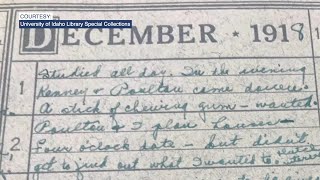 COURTESY:
University of Idaho Library Special Collections
DECEMBER * 1918
1
Studied all day. In the evening
Kenney & Poulton came
A stick of chewing gum — wanted
Poulton & I plan
2
Four o'clock date — but didn't
get to find out what I wanted to